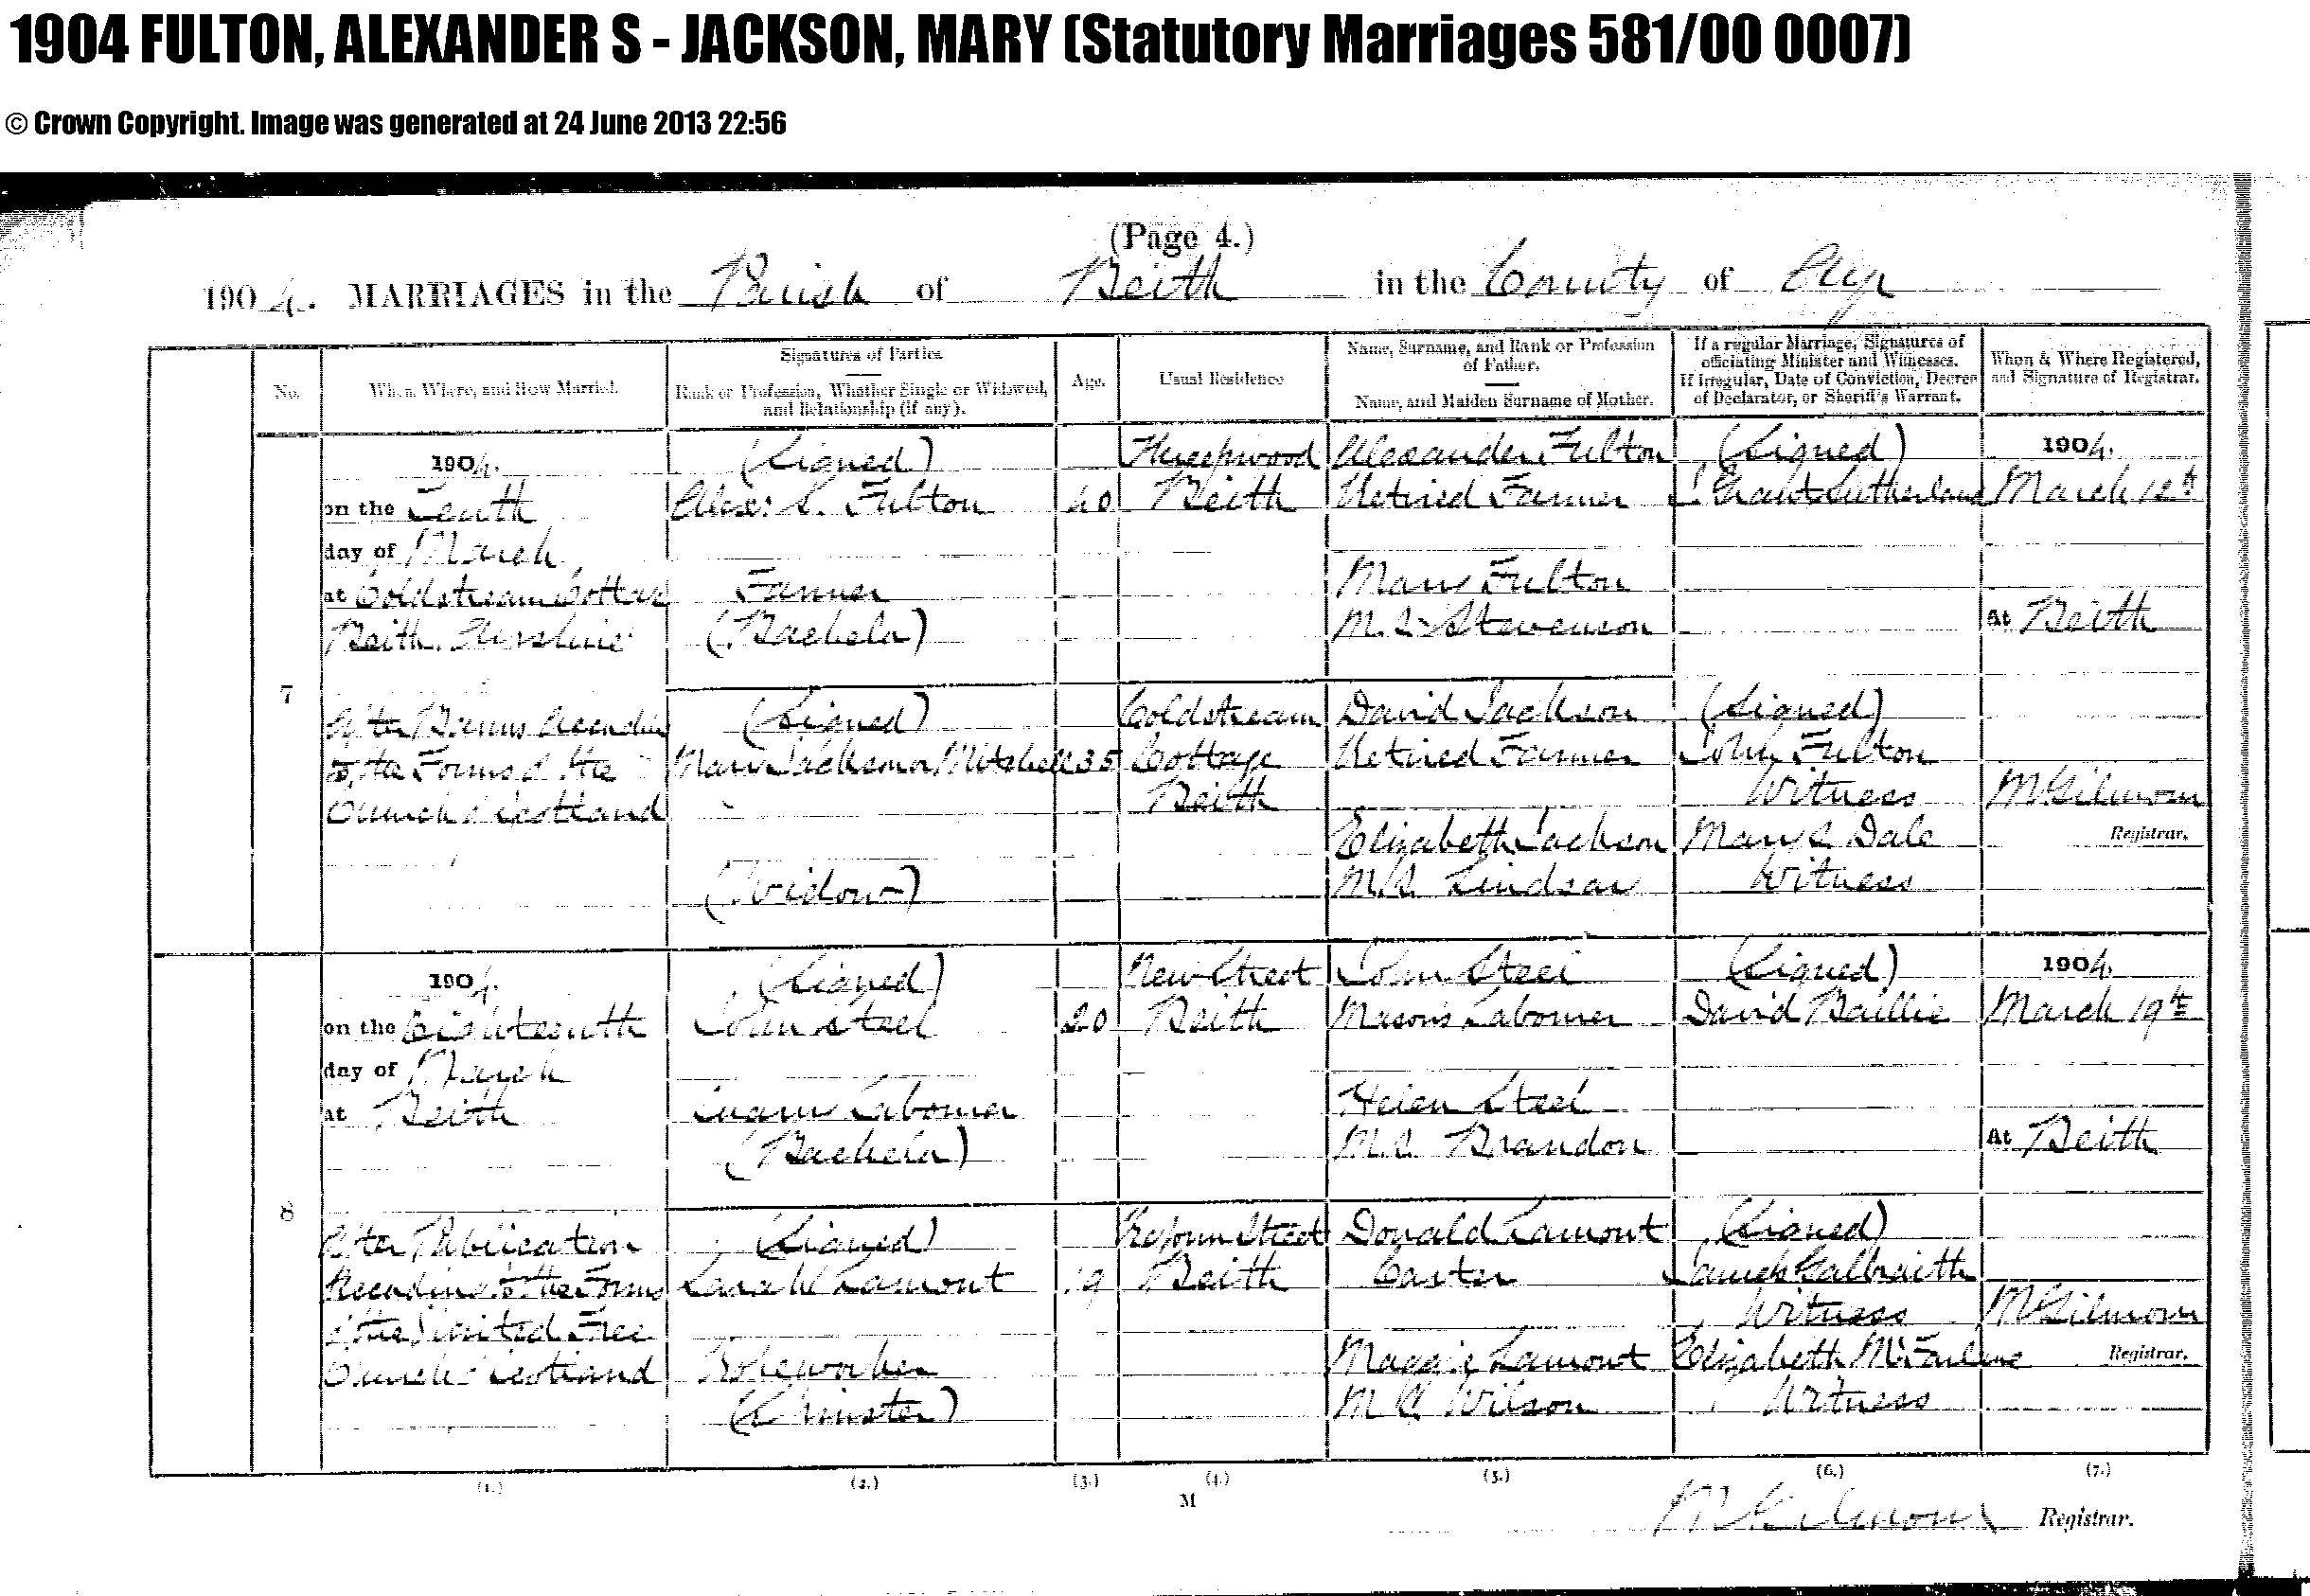 1904 FULTON, ALEXANDER S - JACKSON, MARY (Statutory Marriages 581/00 0007)
© Crown Copyright. Image was generated at 24 June 2013 22:56
(Page 4.)
1904. MARRIAGES in the Parish of Beith in the County of Ayr
No.
When, Where, and How Married.
Signatures of Parties
Rank or Profession, Whether Single or Widowed,
and Relationship (if any).
Age.
Usual Residence
Name, Surname, and Rank or Profession
of Father.
Name, and Maiden Surname of Mother.
If a regular Marriage, Signatures of
officiating Minister and Witnesses.
If Irregular, Date of Conviction, Decree
of Declarator, or Sheriff's Warrant.
When & Where Registered,
and Signature of Registrar.
7
1904.
on the Tenth
day of March
at Coldstream Cottage
Beith, Ayrshire
After Banns according
to the Forms of the
Church of Scotland
(Signed)
Alexr S. Fulton
Farmer
(Bachelor)
40
Threepwood
Beith
Alexander Fulton
Retired Farmer
Mary Fulton
M.S. Stevenson
(Signed)
J. Grant Sutherland
1904.
March 12th
At Beith
(Signed)
Mary Jackson or Mitchell
(Widow)
35
Coldstream
Cottage
Beith
David Jackson
Retired Farmer
Elizabeth Jackson
M.S. Lindsay
(Signed)
John Fulton
Witness
Mary S. Dale
Witness
M Gilmour
Registrar.
8
1904.
on the Eighteenth
day of March
at Beith
After Publication
According to the Forms
of the United Free
Church of Scotland
(Signed)
John Steel
Labourer
(Bachelor)
20
New Street
Beith
John Steel
Mason's Labourer
Helen Steel
M.S. Brandon
(Signed)
David Baillie
1904.
March 19th
At Beith
(Signed)
Sarah Lamont
(Spinster)
19
Reform Street
Beith
Donald Lamont
Carter
Maggie Lamont
M.S. Wilson
(Signed)
James Galbraith
Witness
Elizabeth McFarlane
Witness
M Gilmour
Registrar.
(1.) (2.) (3.) (4.) (5.) (6.) (7.)
M
M Gilmour Registrar.